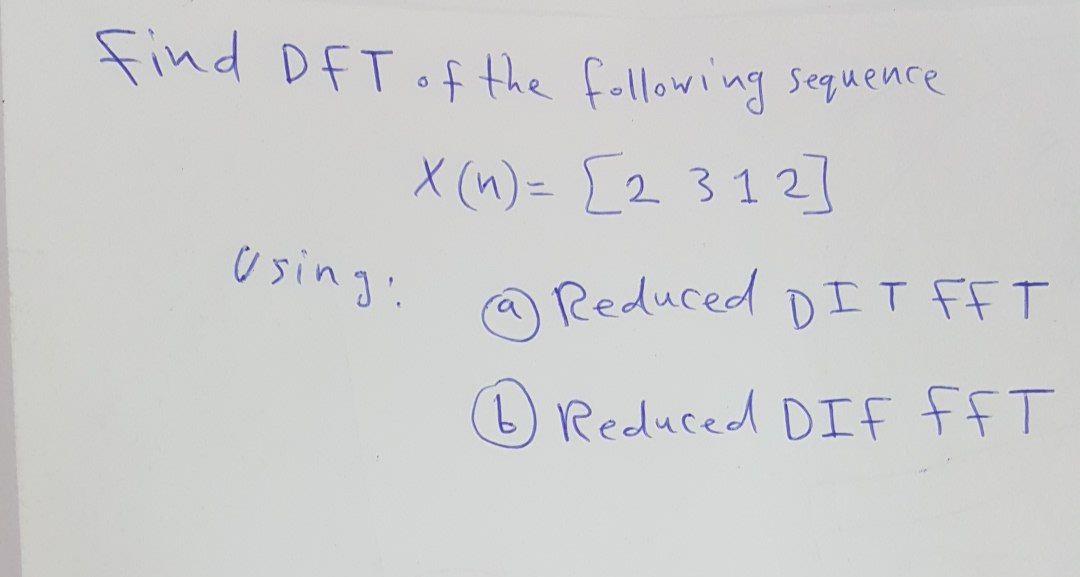 Find DFT of the following sequence
X(n)= [2 3 1 2]
Using:
(a) Reduced DIT FFT
(b) Reduced DIF FFT